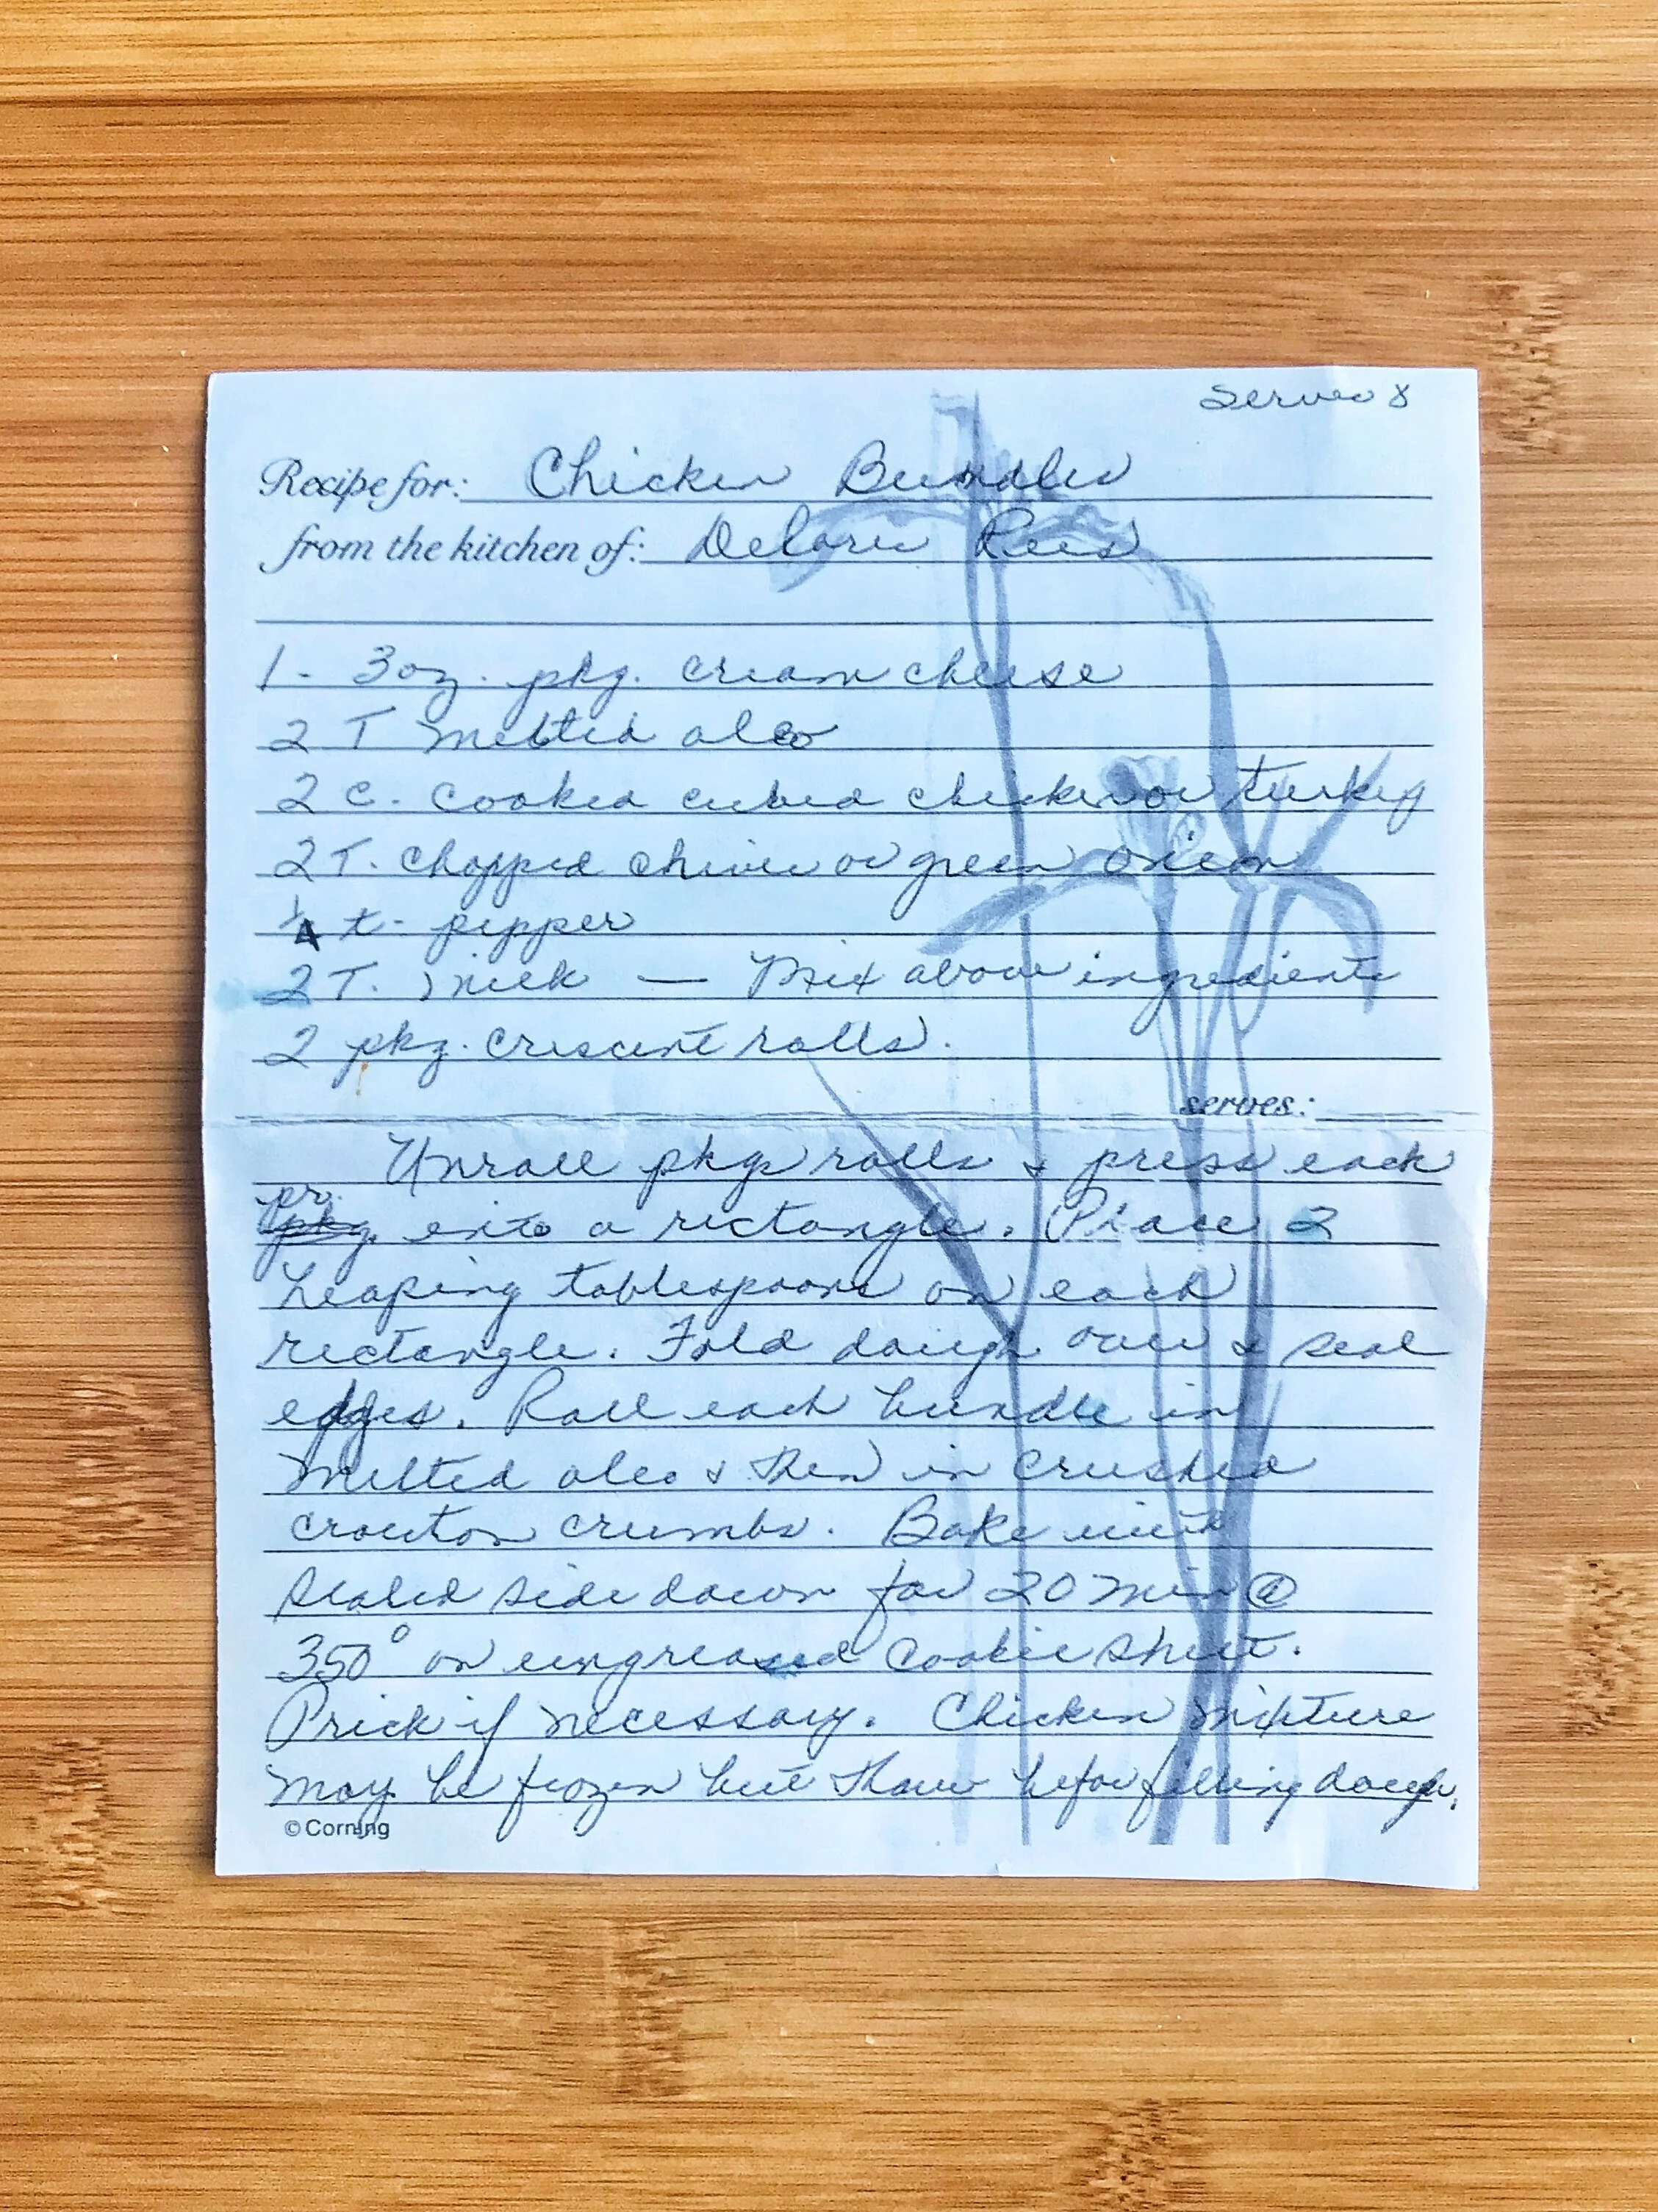 Serves 8
Recipe for: Chicken Bundles
from the kitchen of: Delores Rees
1 - 3 oz. pkg. cream cheese
2 T melted oleo
2 c. cooked cubed chicken or turkey
2 T. chopped chives or green onion
1/4 t - pepper
2 T. milk — Mix above ingredients
2 pkg. crescent rolls.
serves:
Unroll pkgs rolls & press each
pr. pkg. into a rectangle. Place 2
heaping tablespoons on each
rectangle. Fold dough over & seal
edges. Roll each bundle in
melted oleo & then in crushed
crouton crumbs. Bake with
sealed side down for 20 min @
350° on ungreased cookie sheet.
Prick if necessary. Chicken mixture
may be frozen but thaw before filling dough.
© Corning